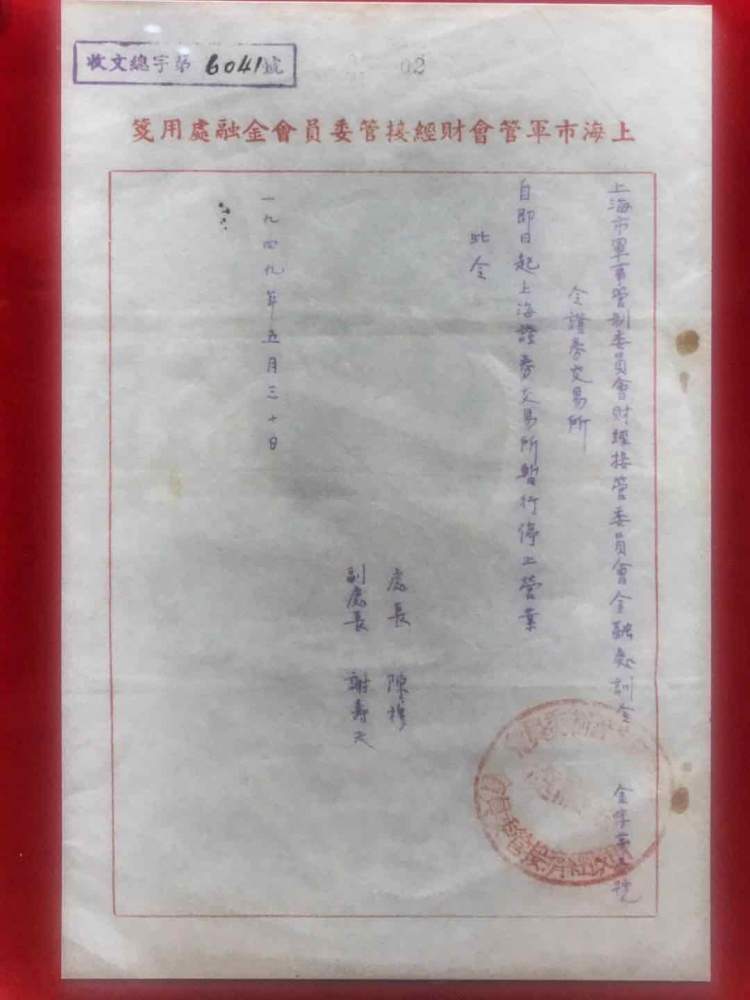 收文總字第6041號
02
上海市軍管會財經接管委員會金融處用箋
上海市軍事管制委員會財經接管委員會金融處訓令 金字第 號
令證券交易所
自即日起上海證券交易所暫行停止營業
此令
處長 陳穆
副處長 謝壽天
一九四九年五月三十日